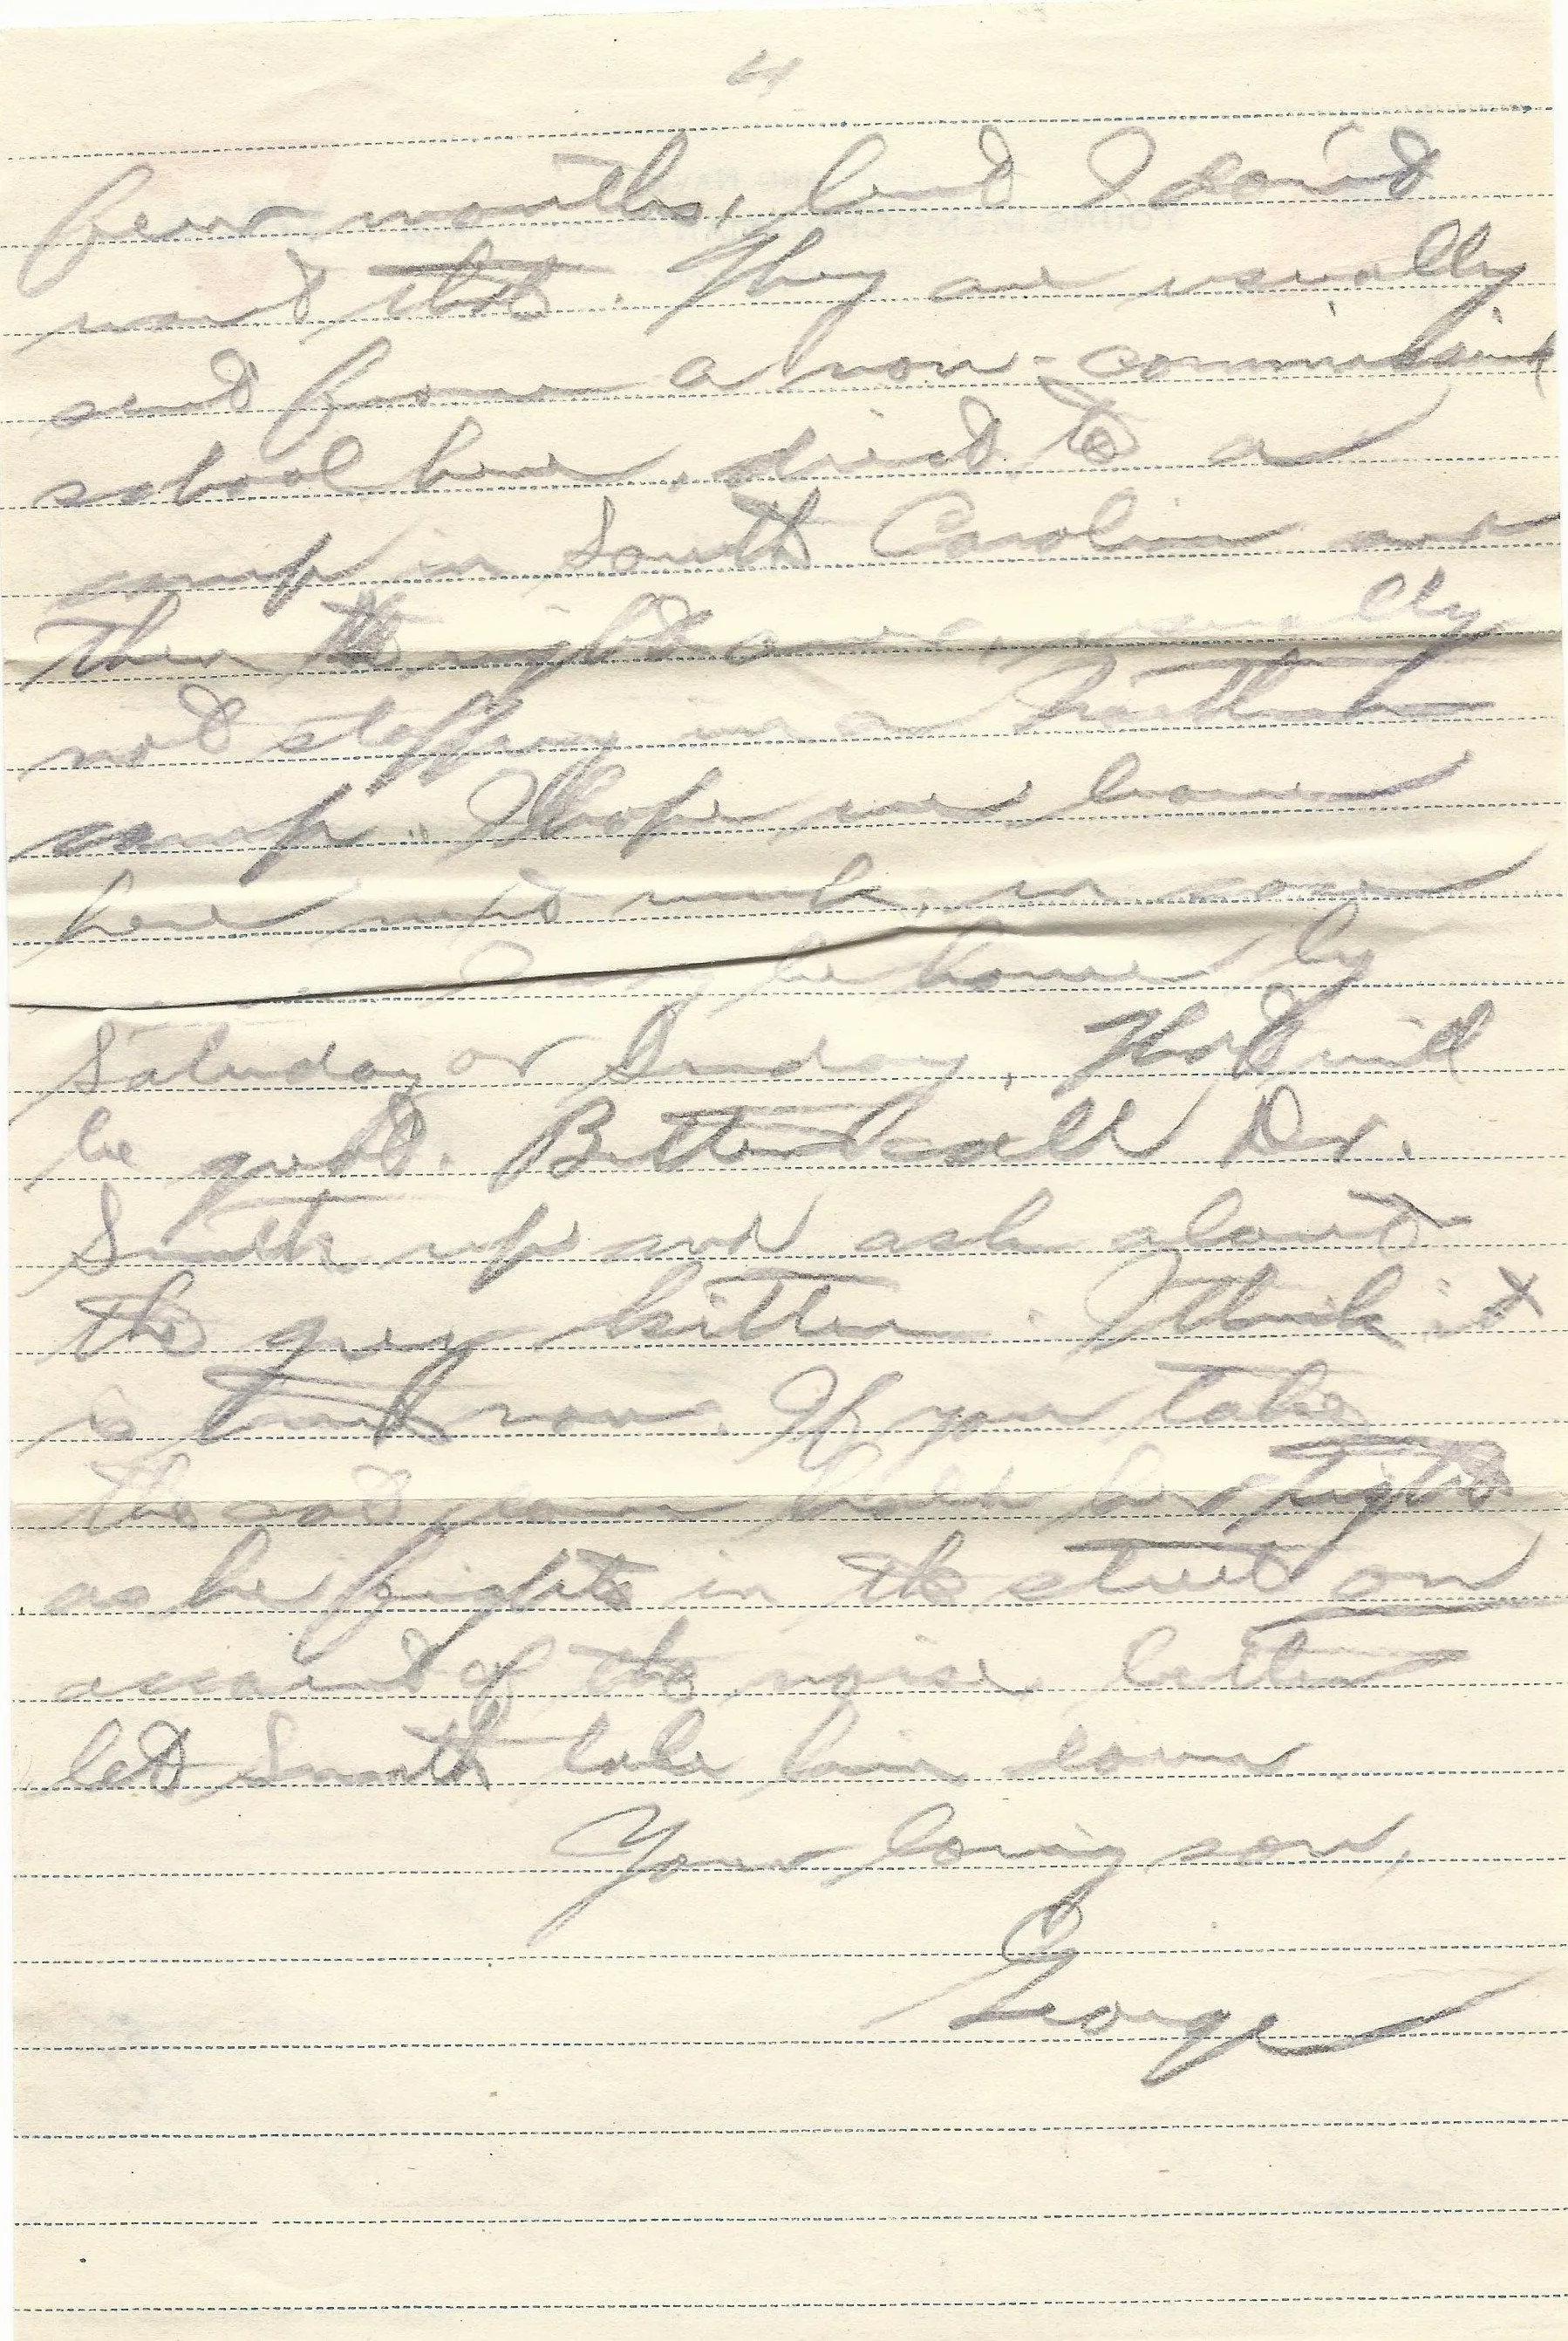 4
few months, but I don't
want that. They are usually
sent from a non-commissioned
school here, direct to a
camp in South Carolina and
then the right over, usually
not stopping in a Northern
camp. I hope we leave
here next week, in case
be home by
Saturday or Sunday. That will
be good. Better call Dr.
Smith up and ask about
the grey kitten. I think it
is time now. If you take
the cat down hold her tight
as he fights in the street on
account of the noise, better
let Smith take him down
Your loving son,
George